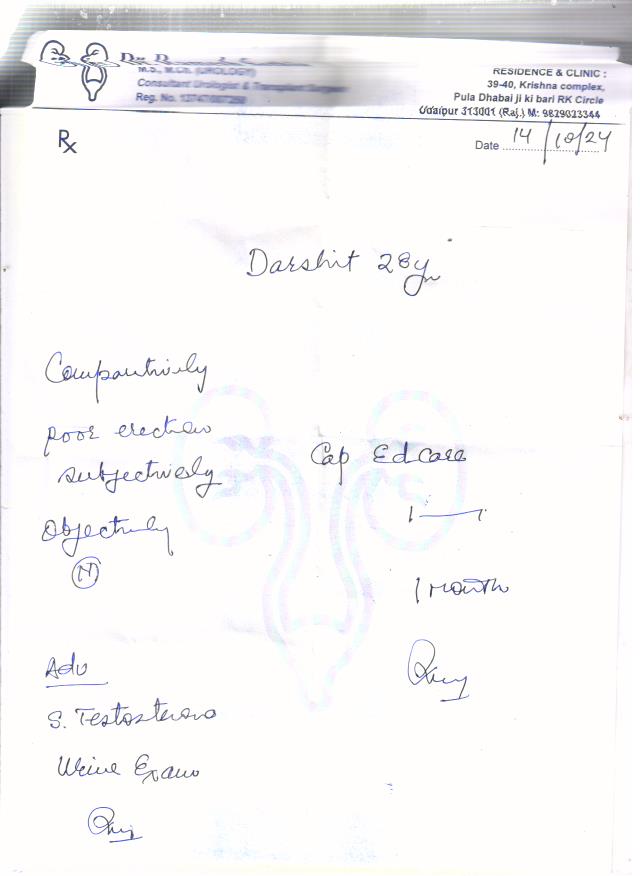 M.S., M.Ch. (UROLOGY)
Consultant Urologist & Transplant Surgeon
Reg. No.
RESIDENCE & CLINIC :
39-40, Krishna complex,
Pula Dhabai ji ki bari RK Circle
Udaipur 313001 (Raj.) M: 9829023344
Rx
Date 14/10/24
Darshit 28 yr
Comparitively
poor erection
subjectively
Objectively
N
Cap Ed care
1
1 month
Adv
S. Testosterone
Urine Exam